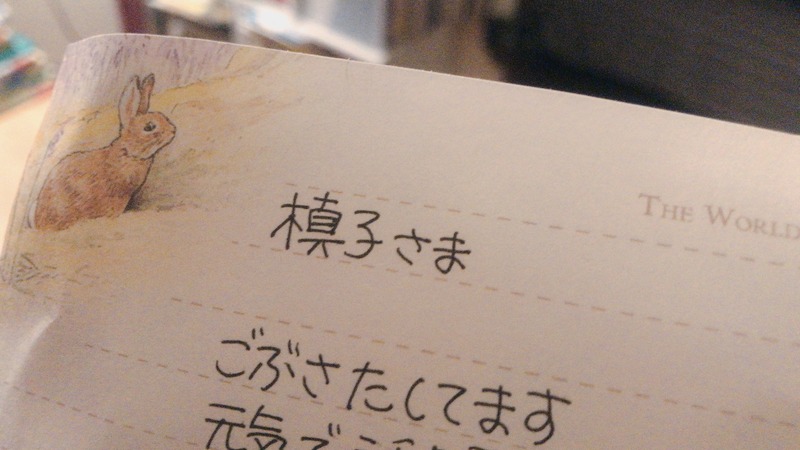 THE WORLD
槙子さま
ごぶさたしてます
元気で